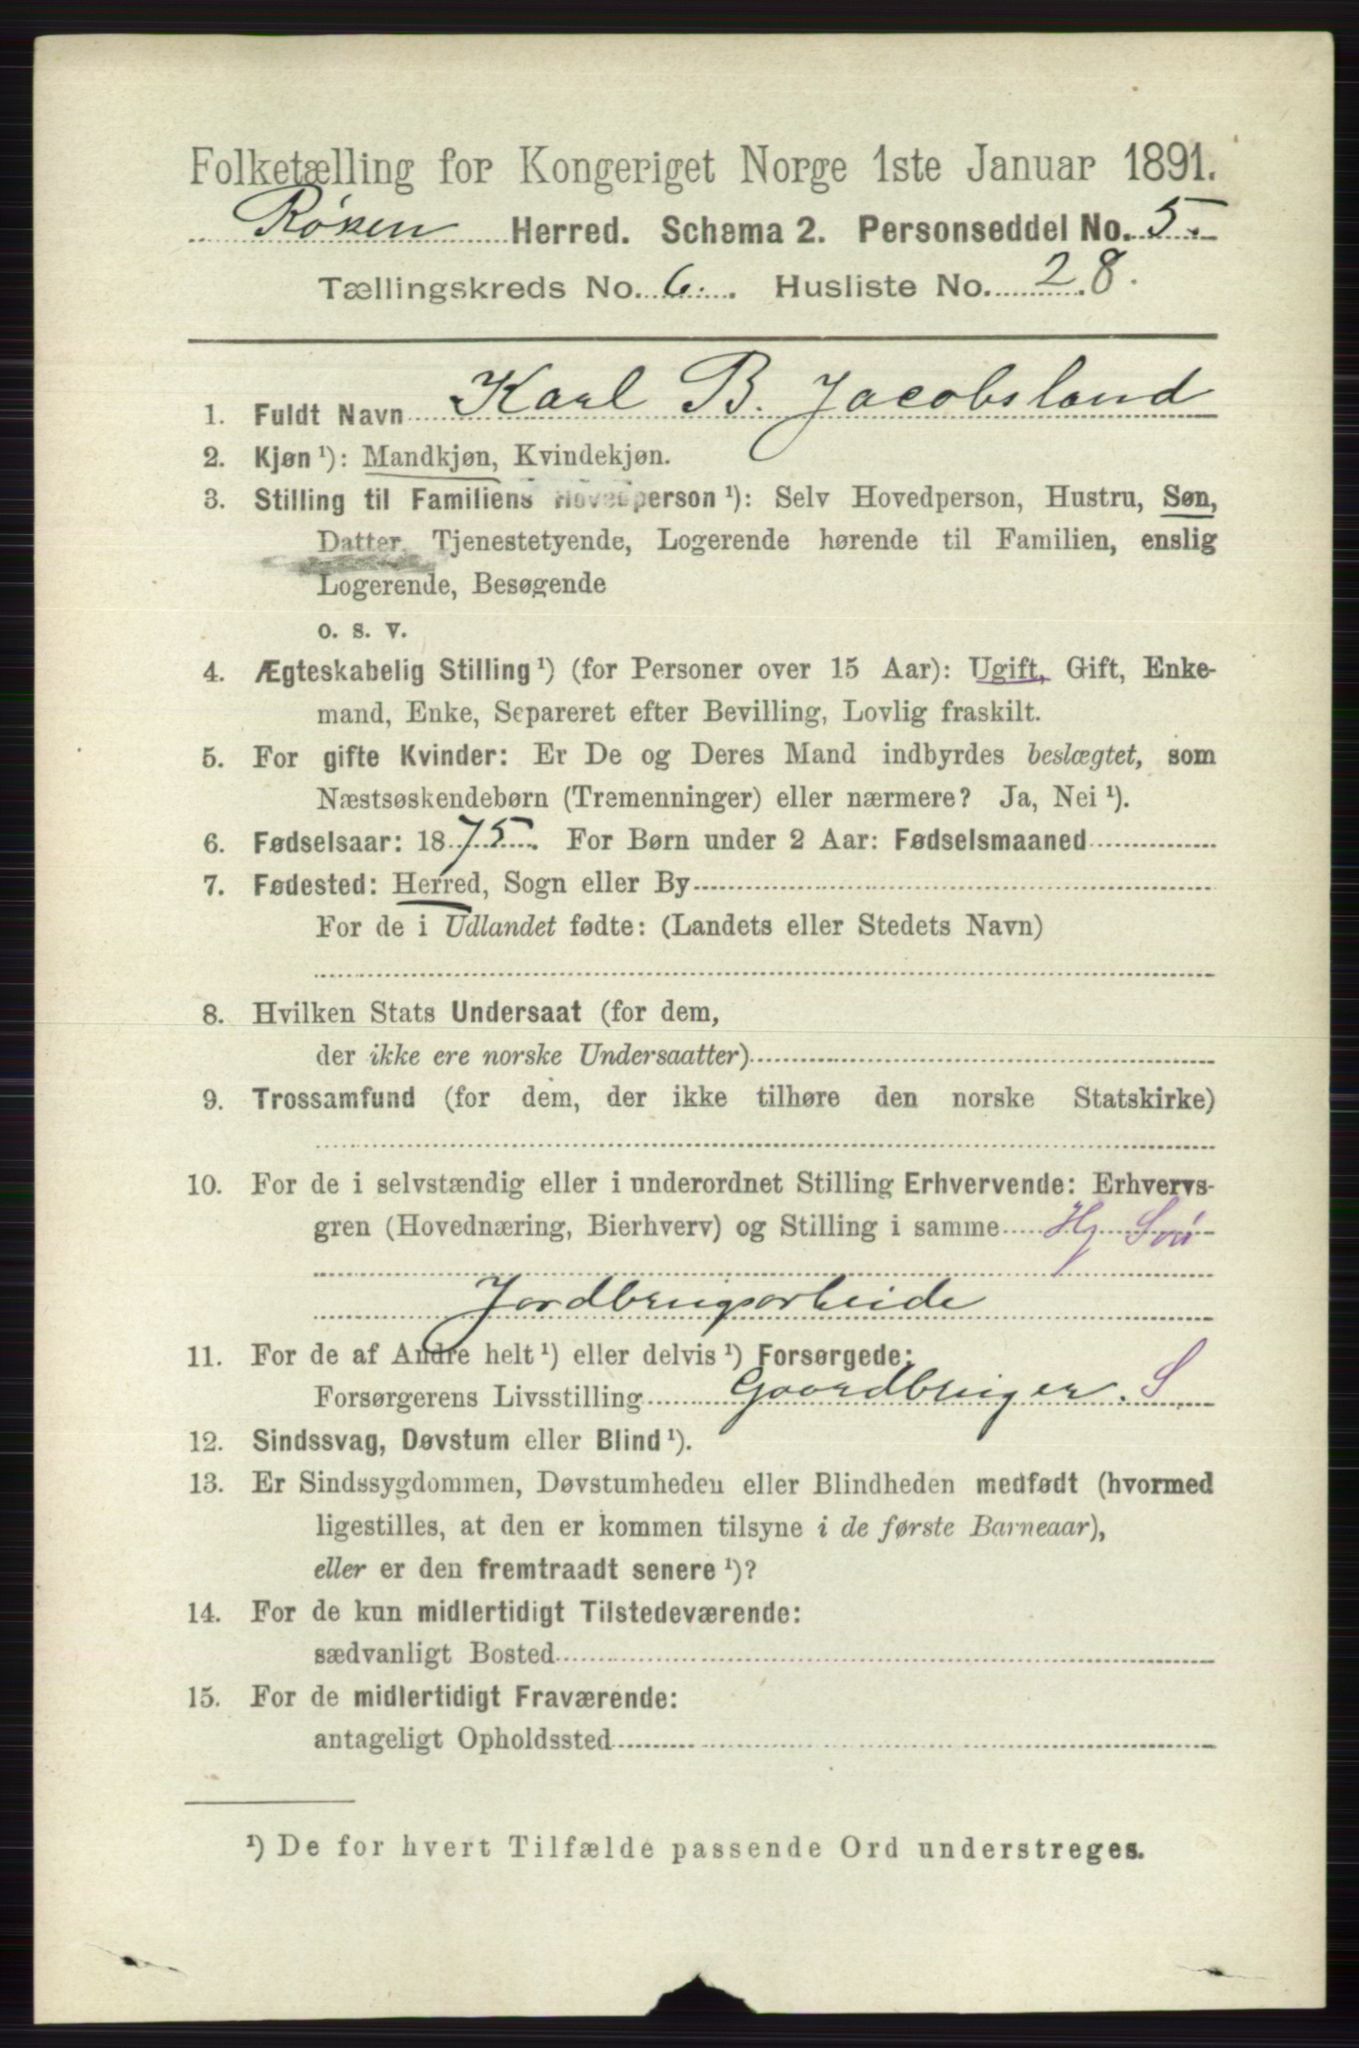 Folketælling for Kongeriget Norge 1ste Januar 1891.
Røken Herred. Schema 2. Personseddel No. 5.
Tællingskreds No. 6. Husliste No. 28.
1. Fuldt Navn Karl B. Jacobsland
2. Kjøn ¹): Mandkjøn, Kvindekjøn.
3. Stilling til Familiens Hovedperson ¹): Selv Hovedperson, Hustru, Søn,
Datter, Tjenestetyende, Logerende hørende til Familien, enslig
Logerende, Besøgende
o. s. v.
4. Ægteskabelig Stilling ¹) (for Personer over 15 Aar): Ugift, Gift, Enke-
mand, Enke, Separeret efter Bevilling, Lovlig fraskilt.
5. For gifte Kvinder: Er De og Deres Mand indbyrdes beslægtet, som
Næstsøskendebørn (Tremenninger) eller nærmere? Ja, Nei ¹).
6. Fødselsaar: 1875. For Børn under 2 Aar: Fødselsmaaned
7. Fødested: Herred, Sogn eller By
For de i Udlandet fødte: (Landets eller Stedets Navn)
8. Hvilken Stats Undersaat (for dem,
der ikke ere norske Undersaatter)
9. Trossamfund (for dem, der ikke tilhøre den norske Statskirke)
10. For de i selvstændig eller i underordnet Stilling Erhvervende: Erhvervs-
gren (Hovednæring, Bierhverv) og Stilling i samme Hj
Jordbrugsarbeide
11. For de af Andre helt ¹) eller delvis ¹) Forsørgede:
Forsørgerens Livsstilling Gaardbruger. S
12. Sindssvag, Døvstum eller Blind ¹).
13. Er Sindssygdommen, Døvstumheden eller Blindheden medfødt (hvormed
ligestilles, at den er kommen tilsyne i de første Barneaar),
eller er den fremtraadt senere ¹)?
14. For de kun midlertidigt Tilstedeværende:
sædvanligt Bosted
15. For de midlertidigt Fraværende:
antageligt Opholdssted
¹) De for hvert Tilfælde passende Ord understreges.